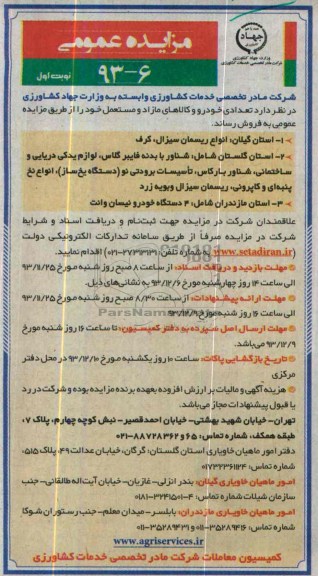 جهاد
وزارت جهاد کشاورزی
شرکت مادر تخصصی خدمات کشاورزی
مزایده عمومی
۹۳-۶
نوبت اول
شرکت مادر تخصصی خدمات کشاورزی وابسته به وزارت جهاد کشاورزی
در نظر دارد تعدادی خودرو و کالاهای مازاد و مستعمل خود را از طریق مزایده
عمومی به فروش رساند.
۱- استان گیلان: انواع ریسمان سیزال، کرف
۲- استان گلستان شامل: شناور با بدنه فایبر گلاس، لوازم یدکی دریایی و
ساختمانی، شناور بارکاس، تأسیسات برودتی نو (دستگاه یخ‌ساز)، انواع نخ
پنبه‌ای و کاپرونی، ریسمان سیزال وبویه زرد
۳- استان مازندران شامل: ۴ دستگاه خودرو نیسان وانت
علاقمندان شرکت در مزایده جهت ثبت‌نام و دریافت اسناد و شرایط
شرکت در مزایده صرفاً از طریق سامانه تدارکات الکترونیکی دولت
www.setadiran.ir با شماره تلفن (۲۷۳۳۱۳۱-۰۲۱) اقدام نمایید.
مهلت بازدید و دریافت اسناد: از ساعت ۸ صبح روز شنبه مورخ ۹۳/۱۱/۲۵
الی ساعت ۱۴ روز چهارشنبه مورخ ۹۳/۱۲/۶ به نشانی‌های ذیل.
مهلت ارائه پیشنهادات: از ساعت ۸/۳۰ صبح روز شنبه مورخ ۹۳/۱۱/۲۵
الی ساعت ۱۶ روز شنبه مورخ ۹۳/۱۲/۹
مهلت ارسال اصل سپرده به دفتر کمیسیون: تا ساعت ۱۶ روز شنبه مورخ
۹۳/۱۲/۹ می‌باشد.
تاریخ بازگشایی پاکات: ساعت ۱۰ روز یکشنبه مورخ ۹۳/۱۲/۱۰ در محل دفتر
مرکزی
هزینه آگهی و مالیات بر ارزش افزوده بعهده برنده مزایده بوده و شرکت در رد
یا قبول پیشنهادات مجاز می‌باشد.
تهران- خیابان شهید بهشتی- خیابان احمدقصیر- نبش کوچه چهارم، پلاک ۷،
طبقه همکف، شماره تماس: ۶۵ و ۸۸۷۲۸۳۶۲-۰۲۱
دفتر امور ماهیان خاویاری استان گلستان: گرگان، خیابان عدالت ۴۹، پلاک ۵۱۵،
شماره تماس: ۰۱۷۳۲۳۶۱۱۲۴
امور ماهیان خاویاری گیلان: بندر انزلی- غازیان- خیابان آیت‌اله طالقانی- جنب
سازمان شیلات شماره تماس: ۴-۳۲۴۱۵۰۱-۰۱۸۱
امور ماهیان خاویاری مازندران: بابلسر- میدان معلم- جنب رستوران شوکا
شماره تماس: ۳۵۲۸۹۴۱۶-۰۱۱ و ۳۵۲۸۹۴۳۱-۰۱۱
www.agriservices.ir
کمیسیون معاملات شرکت مادر تخصصی خدمات کشاورزی